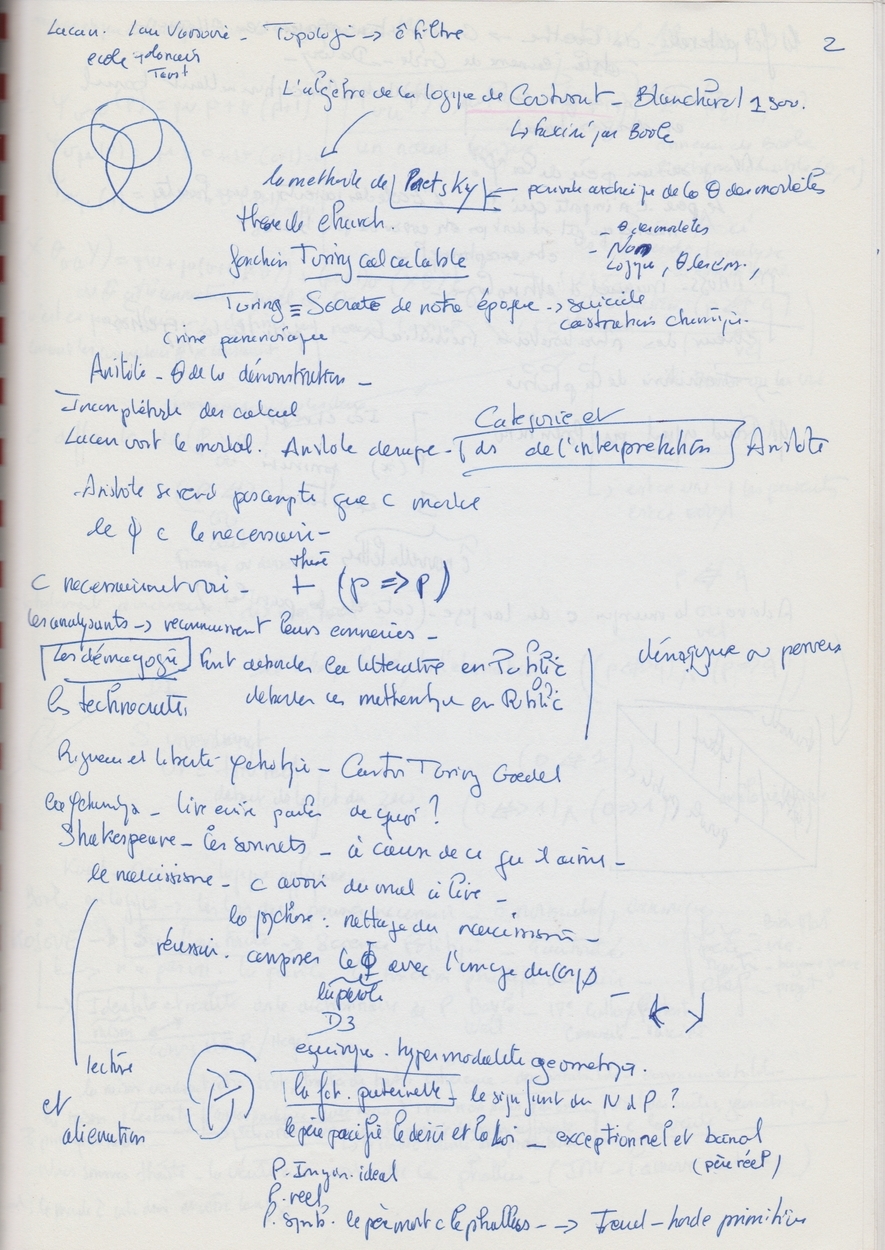 2
Lacan. – Topologie → ê filtre
ecole
L'algèbre de la logique de Couturat – Blanchard 1 Sav.
↳ fasciné par Boole
la methode de Poretsky ← periode archaïque de la θ des modèles
thèse de Church.
- θ des modèles
- Non
Logique, θ
fonction Turing calculable
Turing ≡ Socrate de notre époque → suicide
castration chimique.
Crime paranoïaque
Aristote – θ de la démonstration –
Incomplétude des calculs
Categorie et
Lacan voit le modal. Aristote derape – ds de l'interpretation Aristote
Aristote se rend pas compte que c modal
le ϕ c le necessaire –
thèse
C necessairement vrai – ⊢ (p ⇒ p)
les analysants → reconnaissent leurs conneries –
Les démagogues font deborder la litterature en Public
démagogue ou pervers
les technocrates deborder les mathematiques en Public
Rigueur et liberté – – Cantor Turing Goedel
– lire ecrire parler de quoi ?
Shakespeare – les sonnets – à cause de ce qu'il aime –
le narcissisme – c avoir du mal à lire –
la psychose : nettoyage du narcissisme –
réussir. composer le Φ avec l'image du corps –
la parole
D3
hypermodalité geometrique.
lecture
la fct. paternelle – le signifiant du N d P ?
et
alienation
le père pacifie le desir et la Loi – exceptionnel et banal
(père réel)
P. Imagin. ideal
P. reel
P. symb. le père mort c le phallus – → Freud – horde primitive